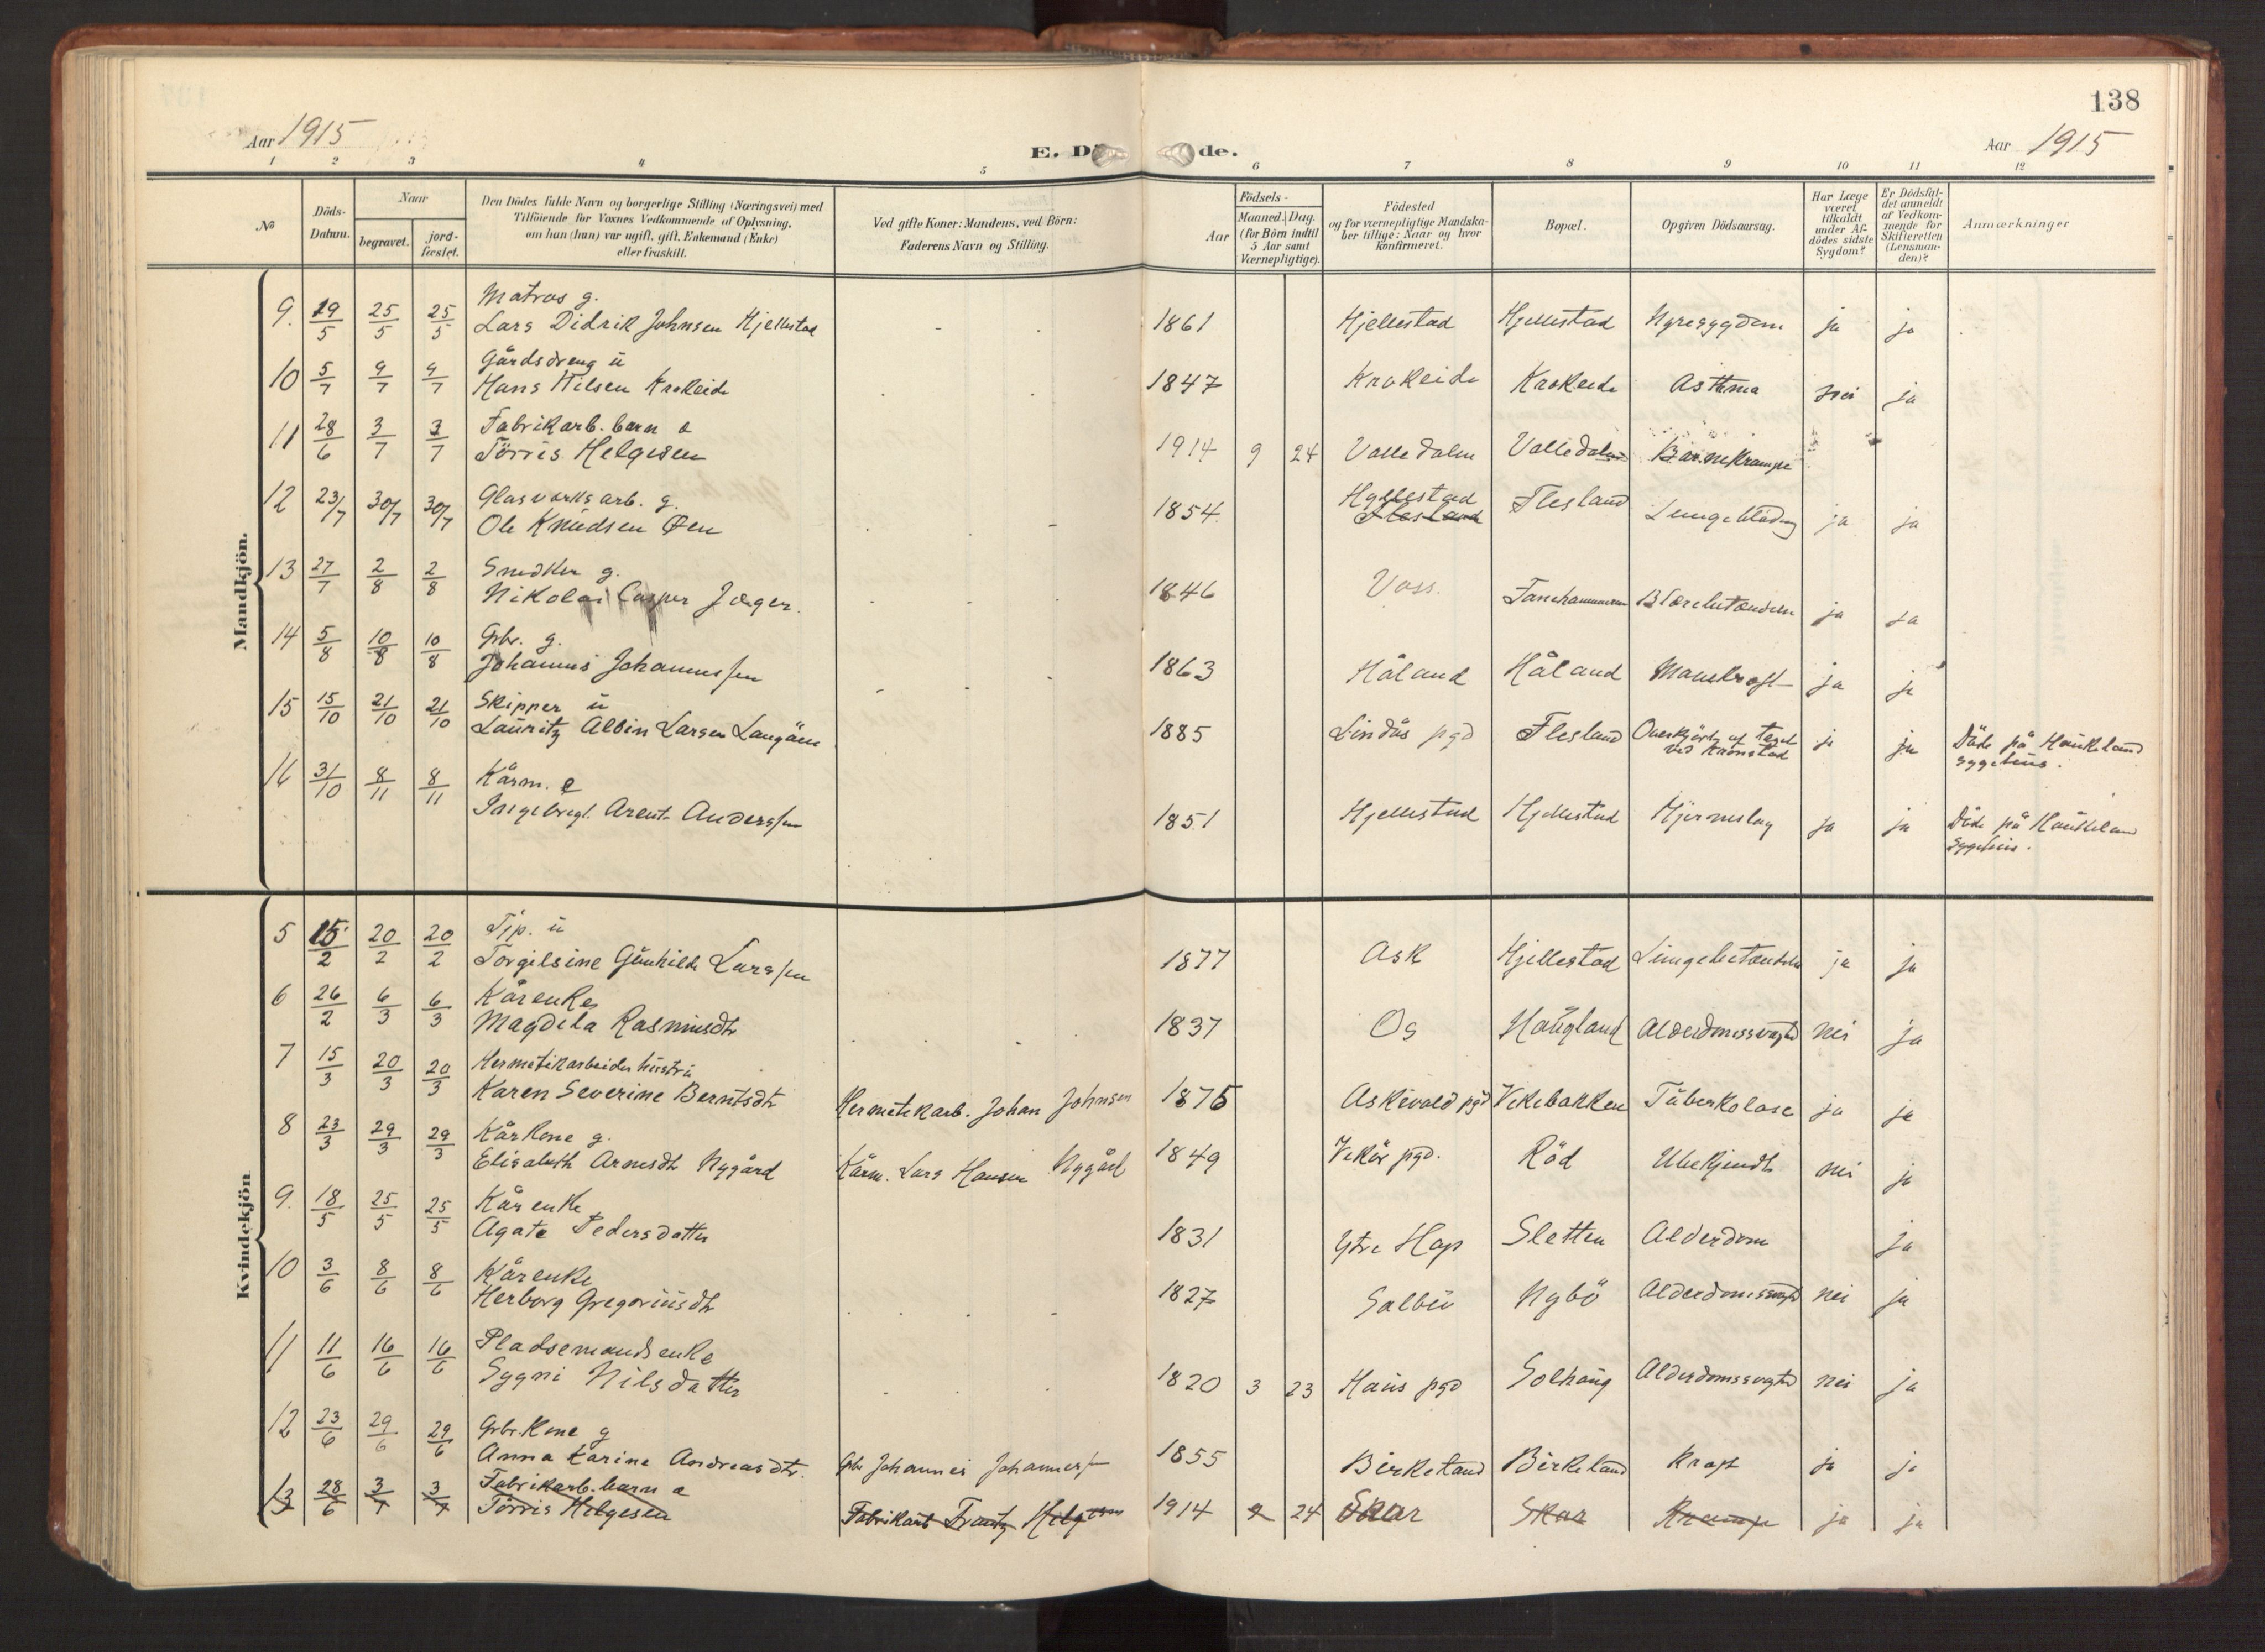 138
Aar 1915
E. Dö de.
Aar 1915
1 2 3 4 5 6 7 8 9 10 11 12
№
Döds-Datum.
Naar
begravet.
jord-fæstet.
Den Dödes fulde Navn og borgerlige Stilling (Næringsvei) med
Tilföiende for Voxnes Vedkommende af Oplysning,
om han (hun) var ugift, gift, Enkemand (Enke)
eller fraskilt.
Ved gifte Koner: Mandens, ved Börn:
Faderens Navn og Stilling.
Födsels-
Aar
Maaned. Dag.
(for Börn indtil
5 Aar samt
Værnepligtige).
Födested
og for værnepligtige Mandska-
ber tillige: Naar og hvor
konfirmeret.
Bopæl.
Opgiven Dödsaarsag.
Har Læge
været
tilkaldt
under Af-
dödes sidste
Sygdom?
Er Dödsfal-
det anmeldt
af Vedkom-
mende for
Skifteretten
(Lensman-
den)?
Anmærkninger
Mandkjön.
Matros g.
9. 19/5 25/5 25/5 Lars Didrik Johnsen Hjellestad 1861 Hjellestad Hjellestad Nyresygdom ja ja
Gårdsdreng u
10 5/7 9/7 9/7 Hans Nilsen Krokeide 1847 Krokeide Krokeide Asthma nei ja
Fabrikarb. barn
11 28/6 3/7 3/7 Törris Helgesen 1914 9 24 Valledalen Valledalen Barnekrampe
Glasverksarb. g.
12 23/7 30/7 30/7 Ole Knudsen Øen 1854 Hjellestad Flesland Flesland Lungeblödng ja ja
Snedker g.
13 27/7 2/8 2/8 Nikolai Casper Jæger. 1846 Voss. Fanehammeren Blærebetændelse ja ja
Gbr. g.
14 5/8 10/8 10/8 Johannes Johannessen 1863 Håland Håland Mavekræft ja ja
Skipper u
15 15/10 21/10 21/10 Lauritz Albin Larsen Langöen 1885 Lindås pgd Flesland Overkjört af toget ved Kronstad ja ja Döde på Haukeland sygehus.
Kårm. e
16 31/10 8/11 8/11 Ingebregt Arent Anderssen 1851 Hjellestad Hjellestad Hjerneslag ja ja Döde på Haukeland sygehus.
Kvindekjön
Tjp. u
5 15/2 20/2 20/2 Torgilsine Gunhilde Larssen 1877 Ask Hjellestad Lungebetændelse ja ja
Kårenke
6 26/2 6/3 6/3 Magdela Rasmusdtr 1837 Os Haugland Alderdomssvaghed nei ja
Hermetikarbeider hustru
7 15/3 20/3 20/3 Karen Severine Berntsdtr Hermetikarb. Johan Johnsen 1875 Askevold pgd Vekebakken Tuberkolose ja ja
Kårkone g.
8 23/3 29/3 29/3 Elisabeth Arnesdtr Nygård Kårm. Lars Hansen Nygård 1849 Vekör pgd. Röd Ubekjendt nei ja
Kårenke
9. 18/5 25/5 25/5 Agate Pedersdatter 1831 Ytre Hop Sletten Alderdom ja
Kårenke
10 3/6 8/6 8/6 Herborg Gregoriusdtr 1827 Salbu Nybö Alderdomssvaghed nei ja
Pladsemandsenke
11 11/6 16/6 16/6 Sygni Nilsdatter 1820 3 23 Haus pgd Solhaug Alderdomssvaghed nei ja
Gbr. Kone g
12 23/6 29/6 29/6 Anna Karine Andreasdtr. Gbr Johannes Johannessen 1855 Birkeland Birkeland Kræft ja ja
Fabrikarb. barn
13 28/6 3/7 3/7 Törris Helgesen Fabrikarb Frantz Helgesen 1914 9 24 Skar Skar Krampe ja ja